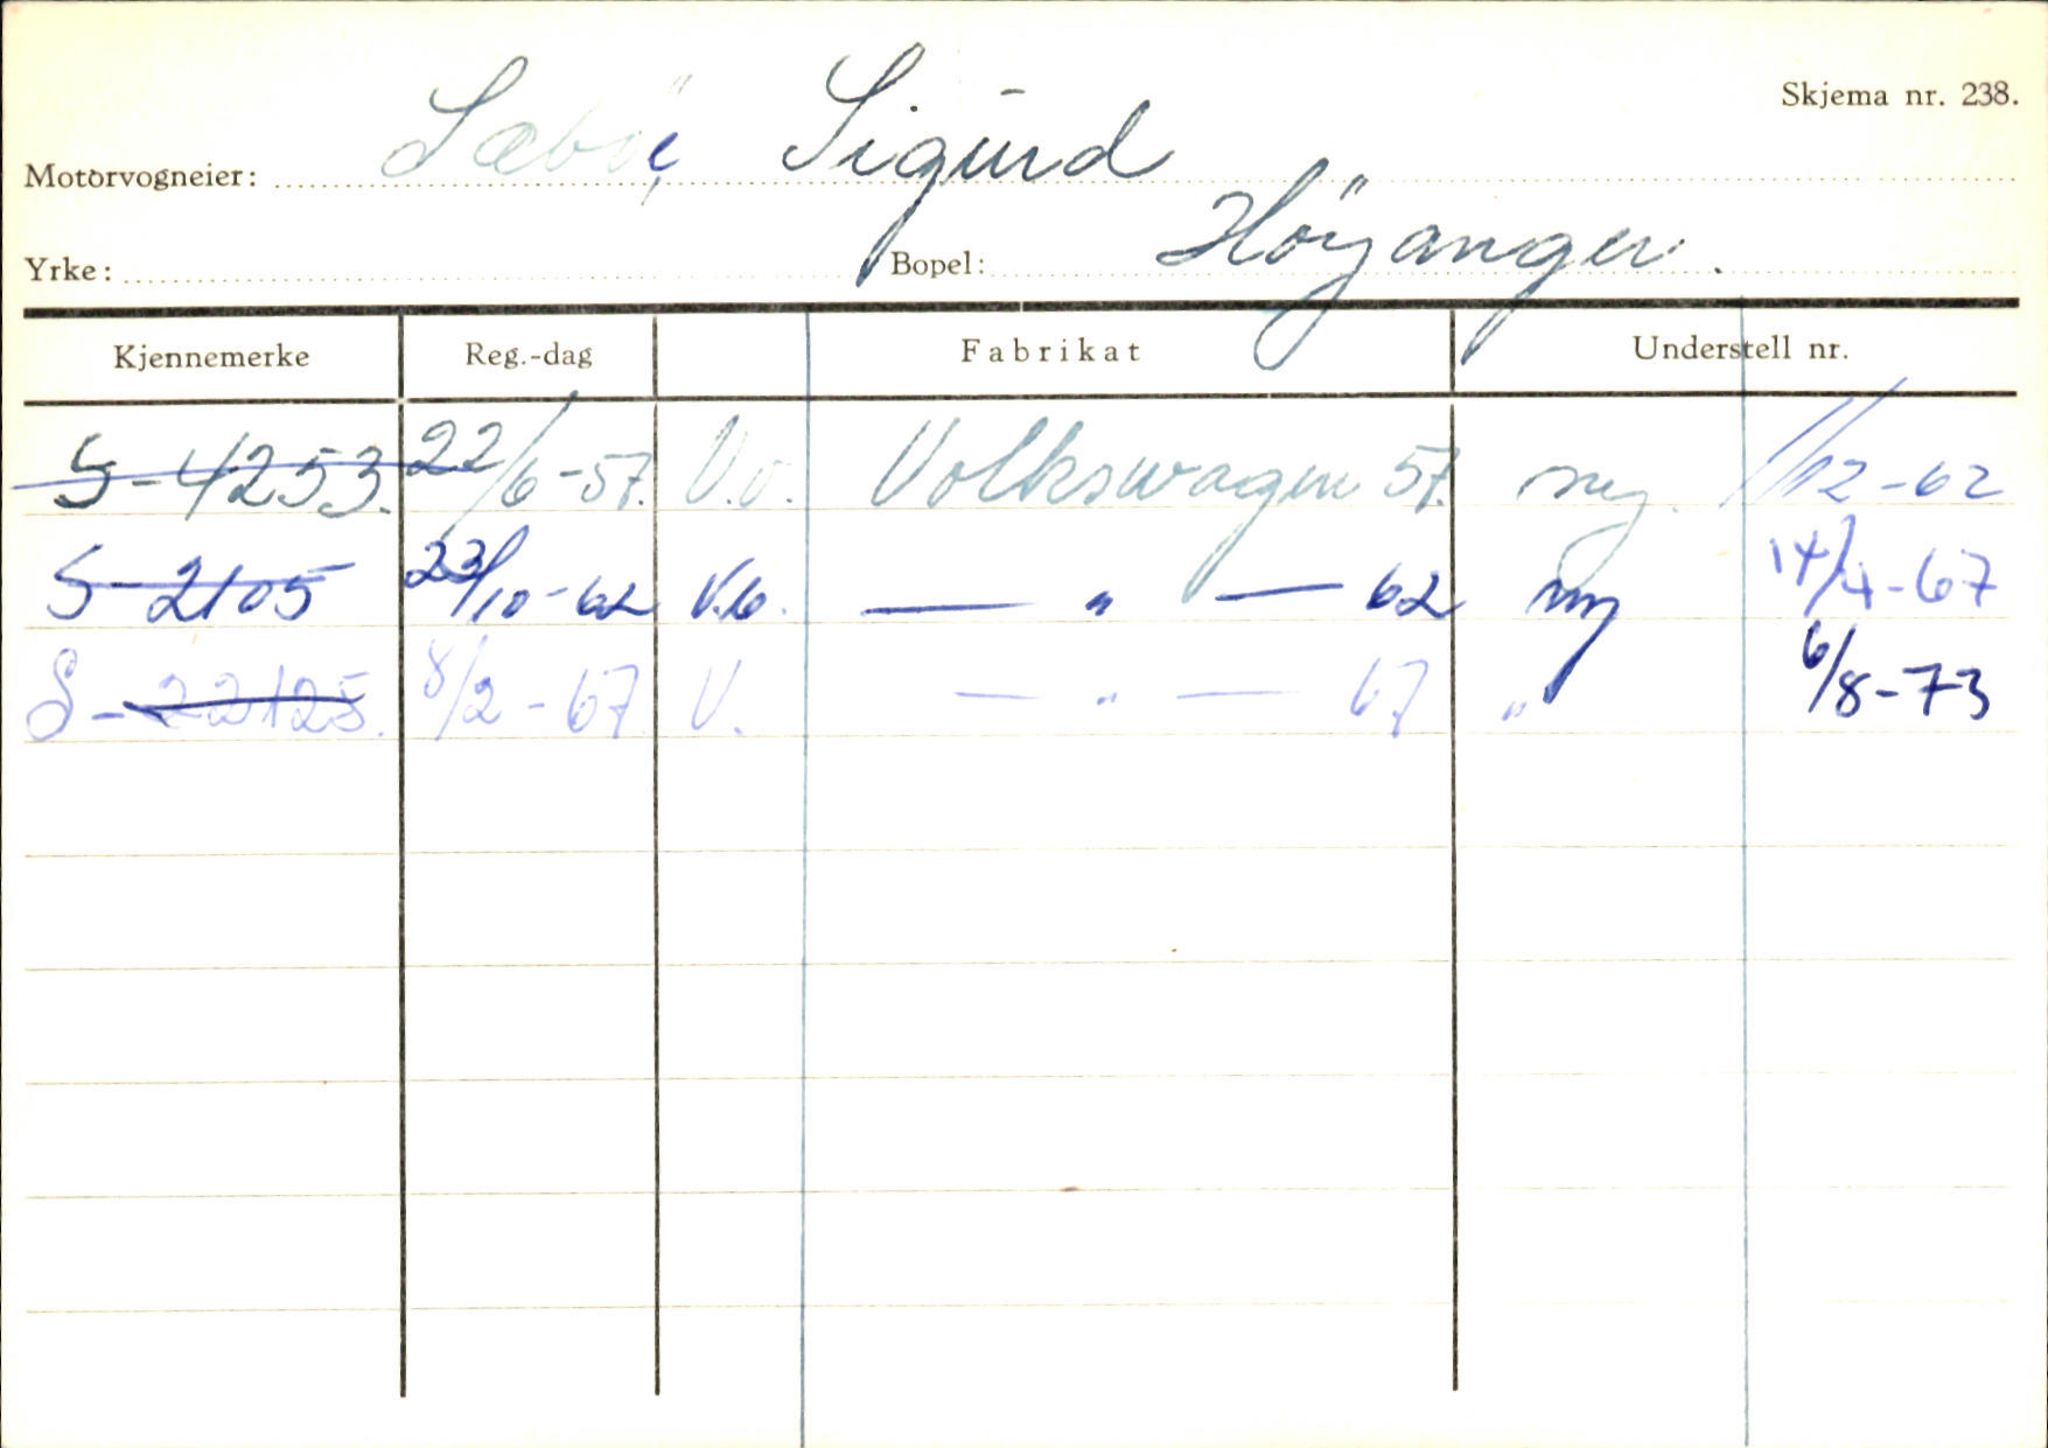 Skjema nr. 238.
Motorvogneier: Sæböe, Sigurd
Yrke: Bopel: Höyanger.
Kjennemerke Reg.-dag Fabrikat Understell nr.
S-4253. 22/6-57. V.v. Volkswagen 57. ny. 1/12-62
S-2105 23/10-62 V.v. — " — 62 ny 14/4-67
S-22125. 8/2-67. V. — " — 67 " 6/8-73